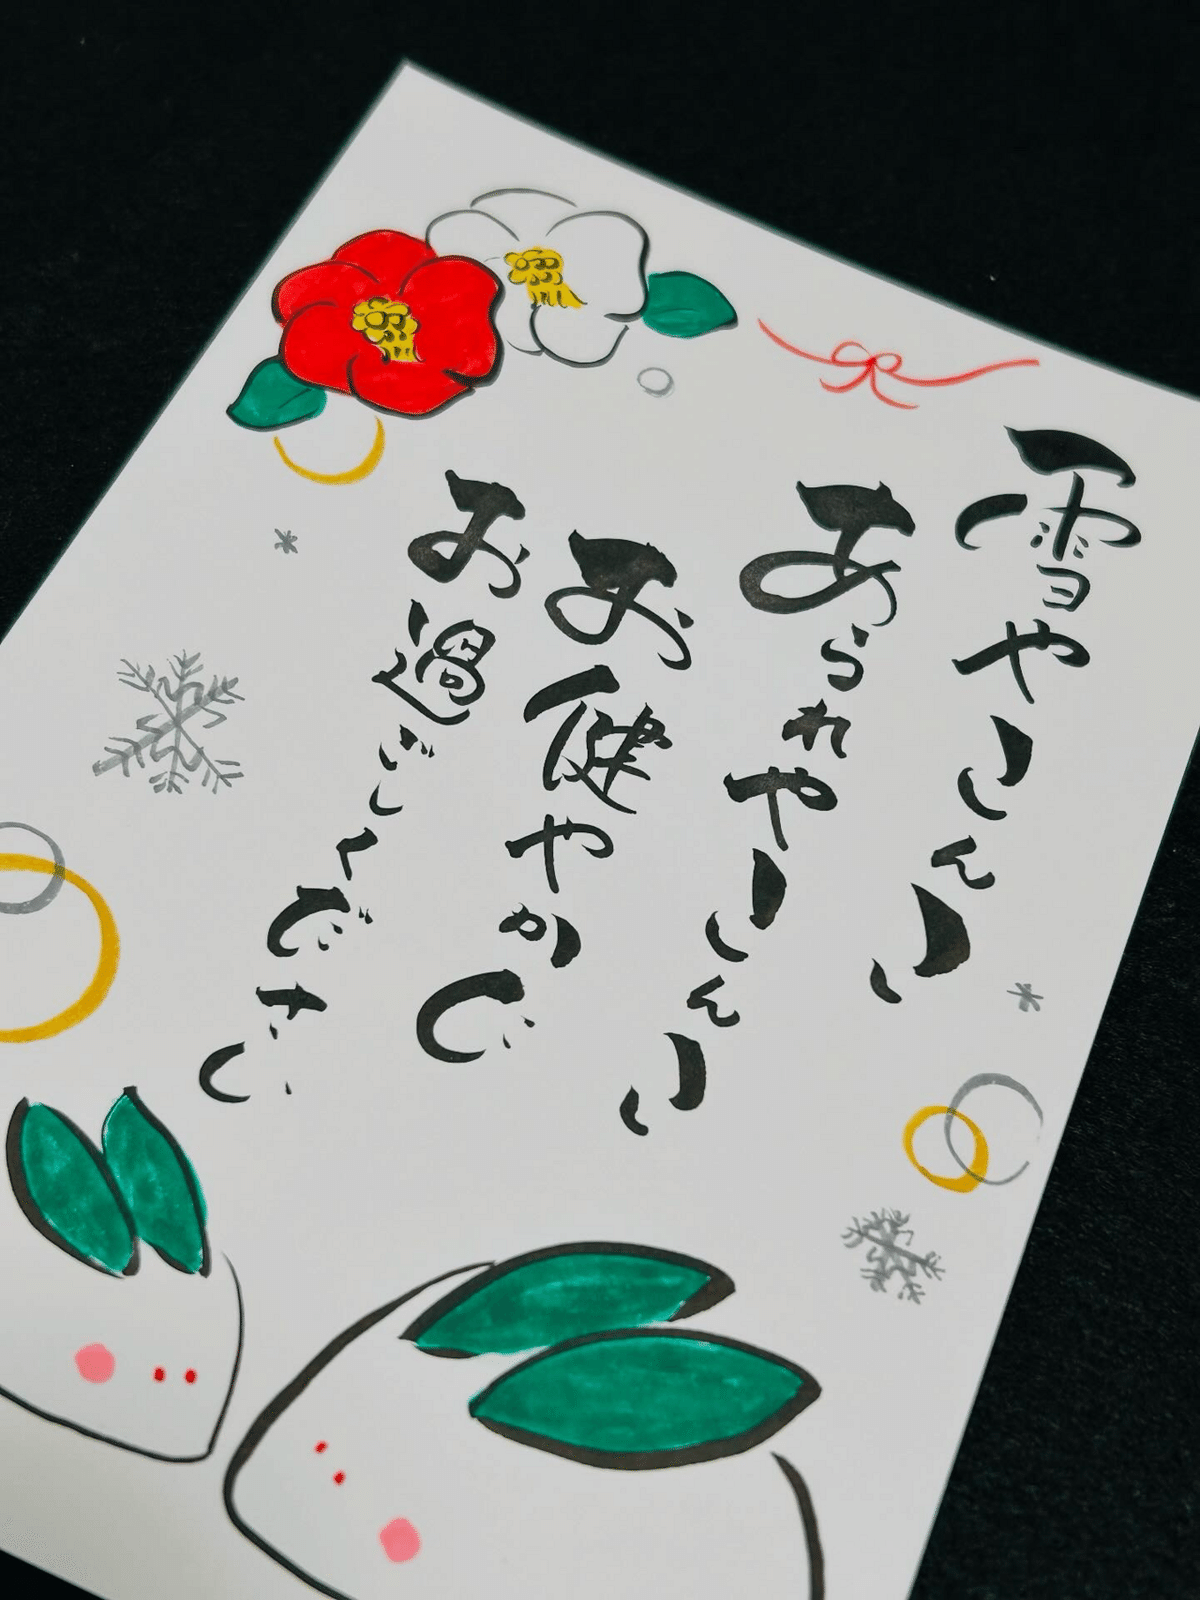 雪やこんこ
あられやこんこ
お健やかに
お過ごしください